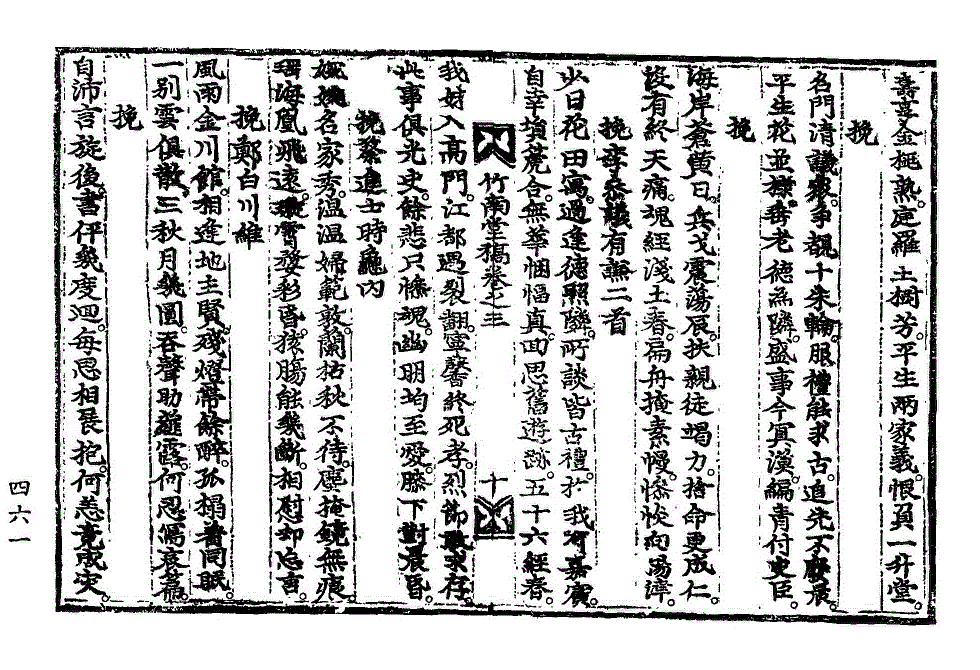 壽喜金桃熟庭羅玉樹芳平生兩家義恨負一升堂
挽
名門清議爭覩十朱輪服禮能求古追先不廢晨
平生花並棣垂老德為隣盛事今冥漠編青付史臣
挽
海岸蒼黃日兵戈震蕩辰扶親徒竭力捨命更成仁
有終天痛魂經淺土春扁舟掩素幔慘惔向湯漳
挽李參議有謙二首
少日花田寓過逢德照隣所談皆古禮於我有嘉賓
自幸墳麓合無華悃愊真回思舊遊跡五十六經春
竹南堂稿卷之三
十
我妹入高門江都遇裂翻寧馨終死孝烈節耿求存
此事俱光史餘悲只愴魂幽明均至愛膝下對晨昏
挽蔡進士時龜內
婉婉名家秀溫溫婦範敦蘭枯秋不待塵掩鏡無痕
瑤海凰飛遠婺彩昏猿腸能幾斷相慰却忘言
挽鄭白川維
風雨金川館相逢地主賢殘燈幾餘醉孤榻著同眠
一別雲俱散三秋月幾圓吞聲助薤露何忍寫哀篇
挽
自沛言旋後書伻幾度迴每思相展抱何忽竟成灾
四六一